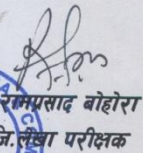 रामप्रसाद बोहोरा
जि.लेखा परीक्षक